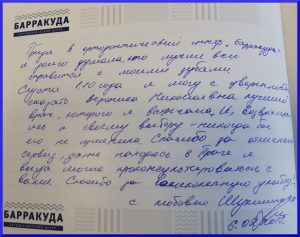 БАРРАКУДА
Придя в ортодонтический центр "Барракуда"
я долго думала, кто лучше всех
справится с моими зубами
Спустя 1,10 года я могу с уверенностью
сказать Вероника Николаевна лучший
врач, которого я встречала. И, возвращаясь
к своему выбору - никогда бы
его не изменила. Спасибо за отличный
сервис, даже находясь в Праге я
могла проконсультироваться с
вами. Спасибо за великолепную улыбку!
с любовью
БАРРАКУДА